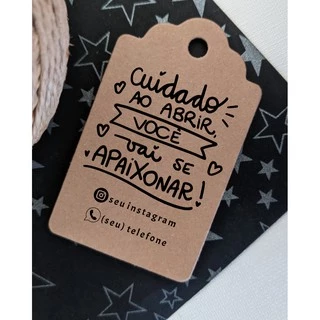 Cuidado
AO ABRIR,
VOCÊ
vai SE
APAIXONAR!
seu instagram
(seu) telefone